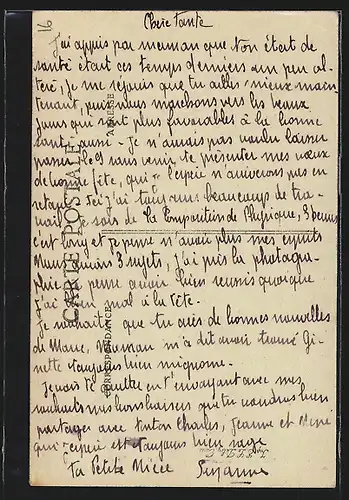 16
Chère Tante
J'ai appris par maman que ton état de
santé était ces temps derniers un peu al-
téré, je me réjouis que tu ailles mieux main-
tenant, puis nous marchons vers les beaux
jours qui sont plus favorables à la bonne
santé aussi. Je n'aurais pas voulu laisser
passer le 9 sans venir te présenter mes vœux
de bonne fête, qui j'espère n'arriveront pas en
retard. Ici j'ai toujours beaucoup de tra-
vail, je sors de la composition de Physique, 3 heures
c'est long et je pense n'avoir plus mes esprits
Nous avions 3 sujets, j'ai pris la photogra-
phie je pense avoir bien réussi quoique
j'ai mal à la tête.
Je souhaite que tu aies de bonnes nouvelles
de Marie, Maman m'a dit avoir trouvé Gi-
nette toujours bien mignonne.
Je vais te quitter en t'envoyant avec mes
souhaits mes bons baisers que tu voudras bien
partager avec tonton Charles, Jeanne et
qui j'espère est toujours bien sage
Ta Petite Nièce Suzanne
CARTE POSTALE
CORRESPONDANCE
ADRESSE